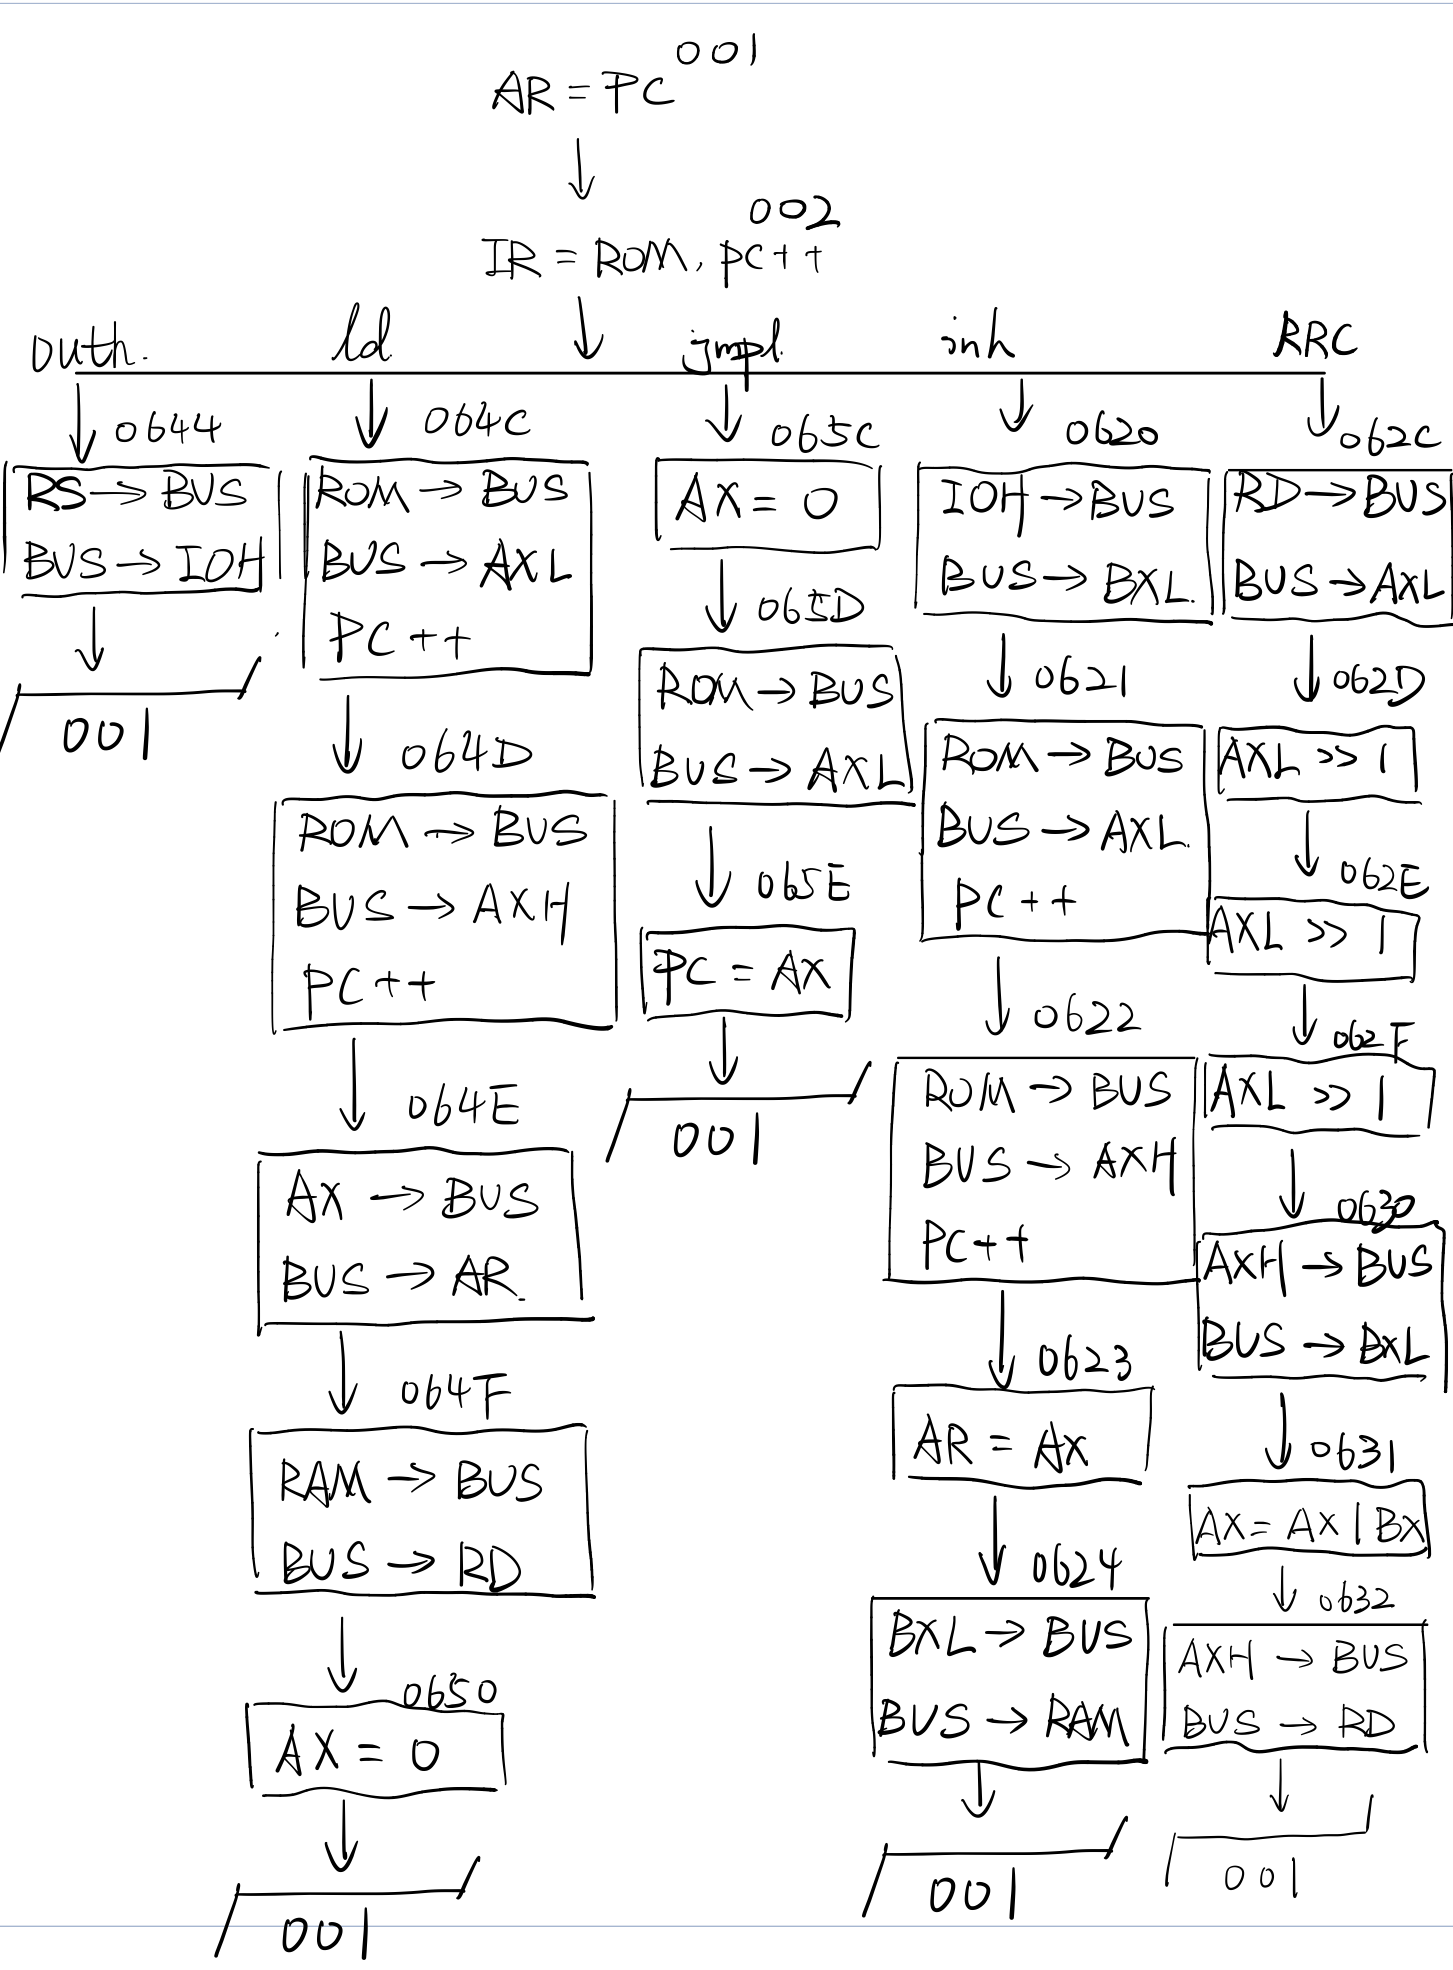 001
AR = PC
002
IR = ROM, PC++
outh.
ld
jmpl
inh
RRC
0644
RS → BUS
BUS → IOH
001
064C
ROM → BUS
BUS → AXL
PC++
064D
ROM → BUS
BUS → AXH
PC++
064E
AX → BUS
BUS → AR
064F
RAM → BUS
BUS → RD
0650
AX = 0
001
065C
AX = 0
065D
ROM → BUS
BUS → AXL
065E
PC = AX
001
0620
IOH → BUS
BUS → BXL
0621
ROM → BUS
BUS → AXL
PC++
0622
ROM → BUS
BUS → AXH
PC++
0623
AR = AX
0624
BXL → BUS
BUS → RAM
001
062C
RD → BUS
BUS → AXL
062D
AXL >> 1
062E
AXL >> 1
062F
AXL >> 1
0630
AXH → BUS
BUS → BXL
0631
AX = AX | BX
0632
AXH → BUS
BUS → RD
001